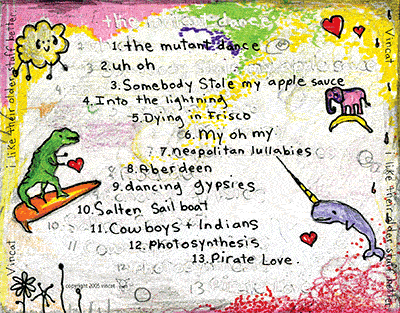 the mutant dance
1. the mutant dance
2. uh oh
3. Somebody Stole my apple sauce
4. Into the lightning
5. Dying in Frisco
6. My oh my
7. neapolitan lullabies
8. Aberdeen
9. dancing gypsies
10. Salten Sailboat
11. Cowboys + Indians
12. Photosynthesis
13. Pirate Love
i like their older stuff better
Vincat
Vincat
i like their older stuff better
copyright 2005 vincat